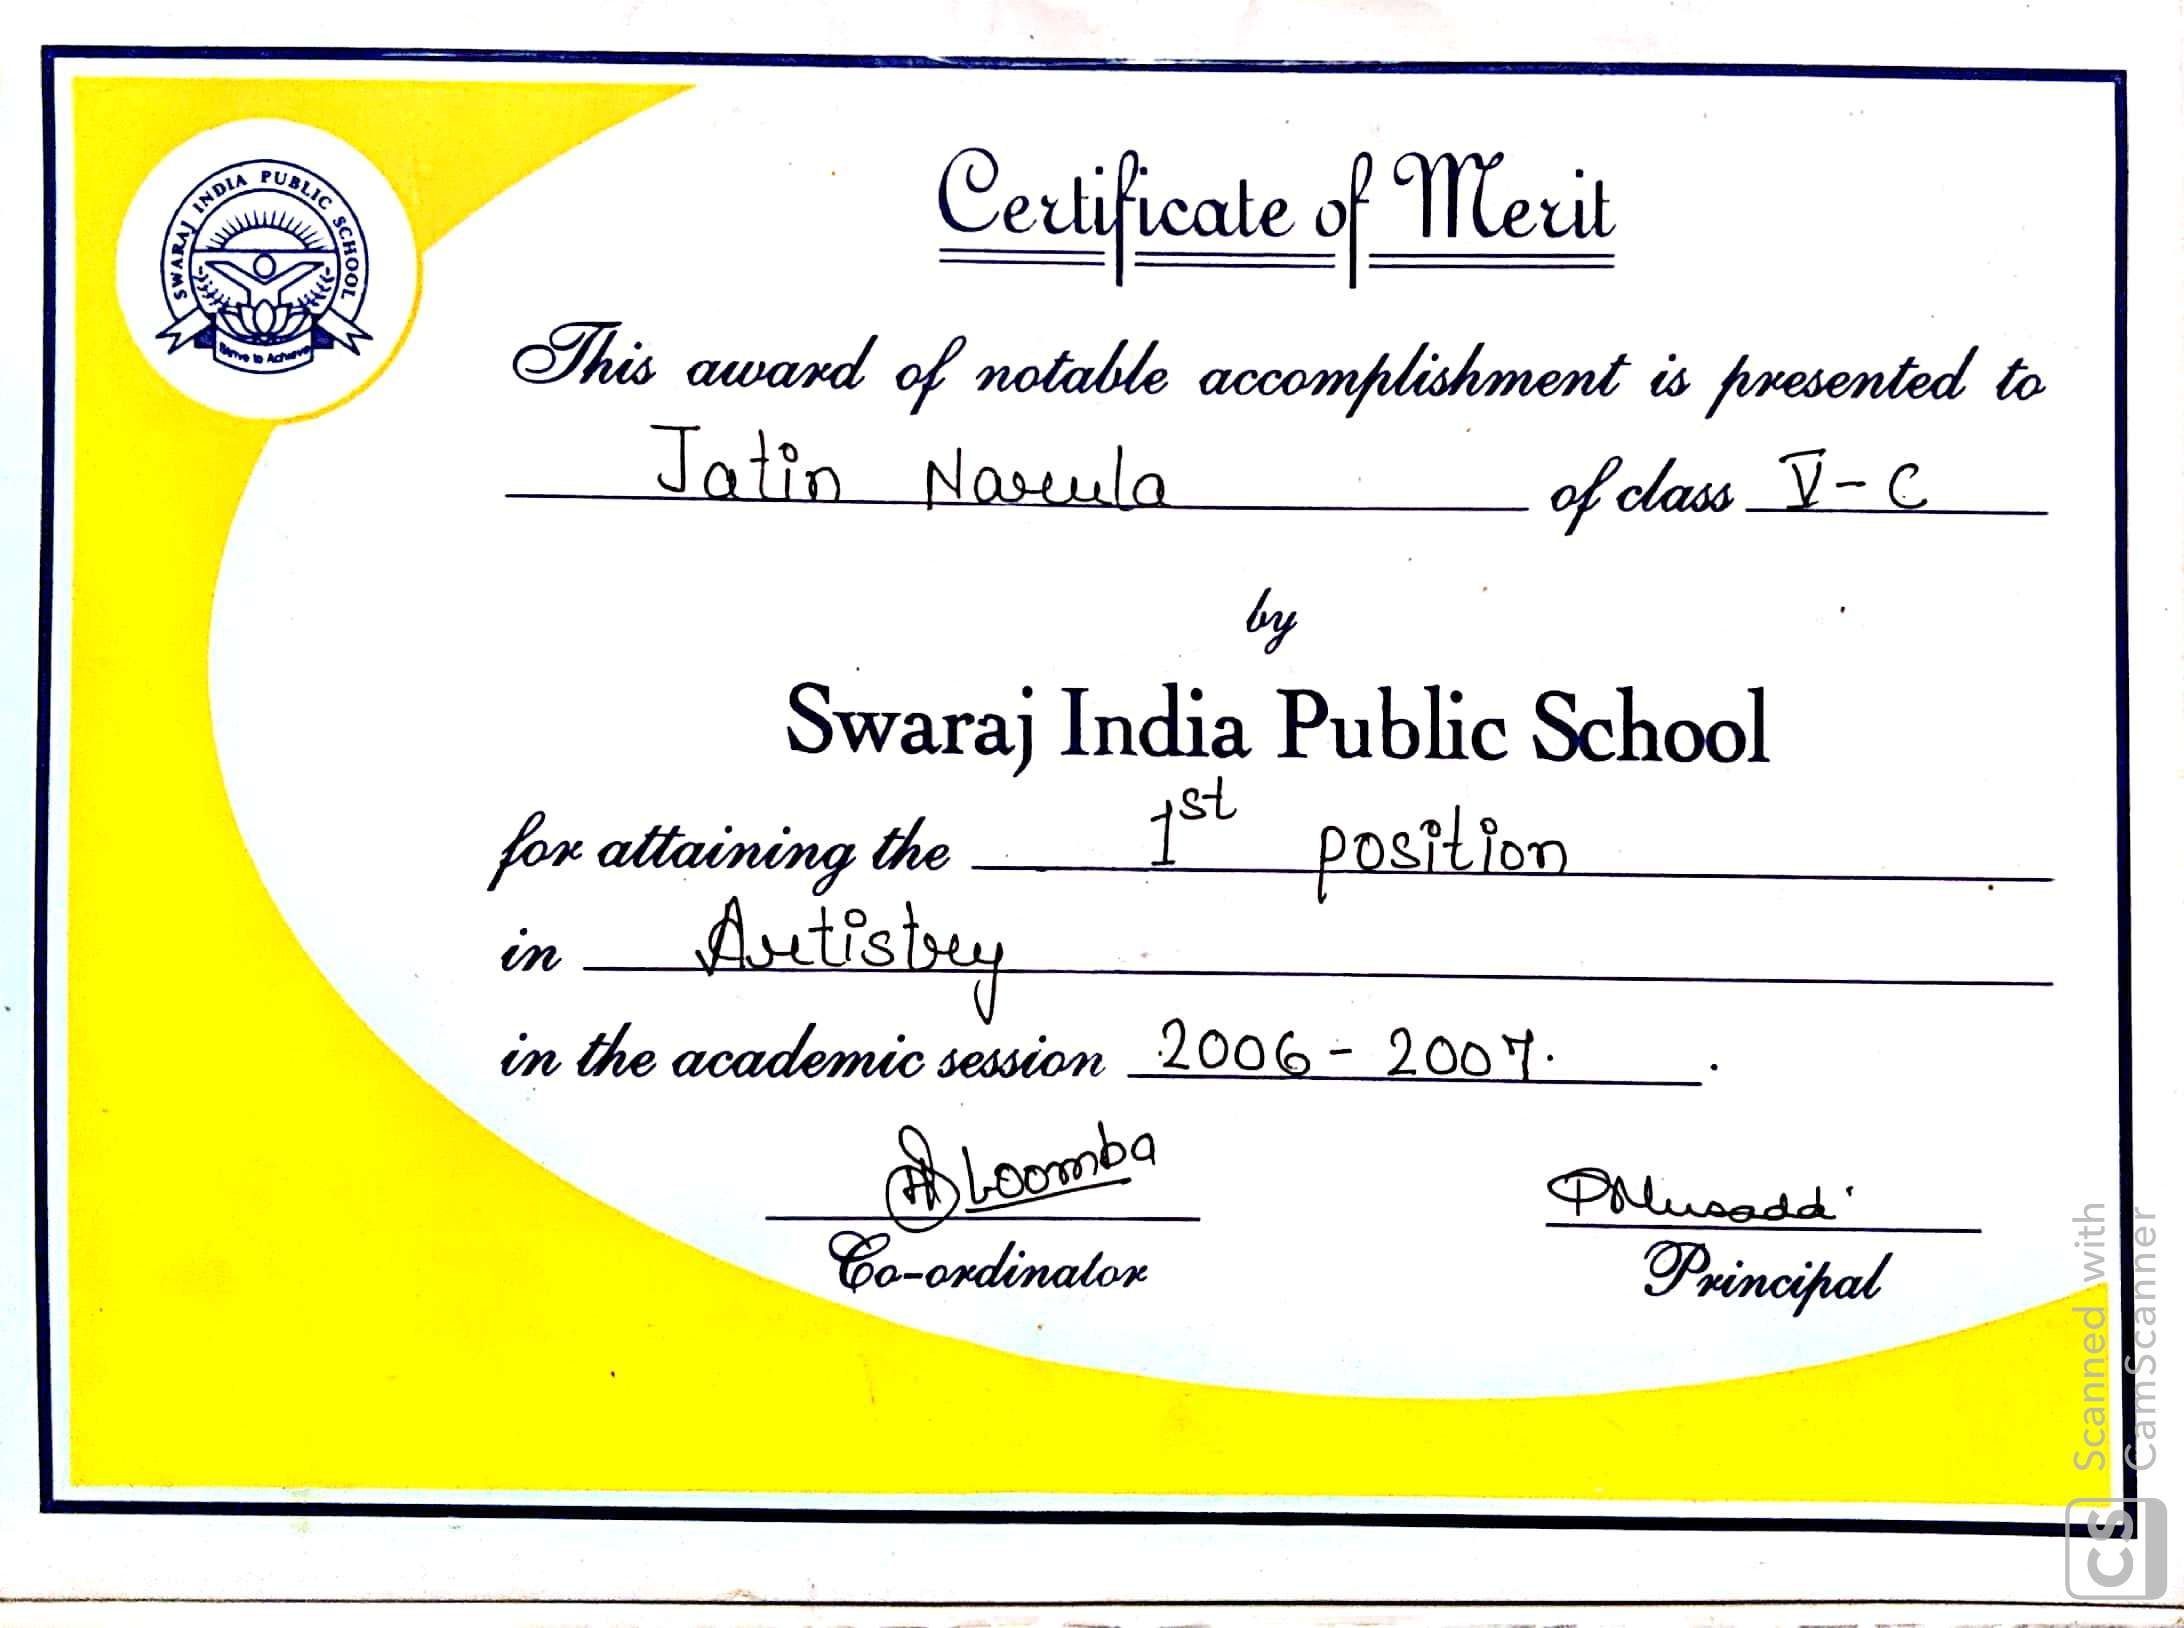 SWARAJ INDIA PUBLIC SCHOOL
Strive to Achieve
Certificate of Merit
This award of notable accomplishment is presented to
Jatin Narula of class V-C
by
Swaraj India Public School
for attaining the 1st position
in Artistry
in the academic session 2006 - 2007.
Loomba
Co-ordinator
Principal
Scanned with
CamScanner
CS